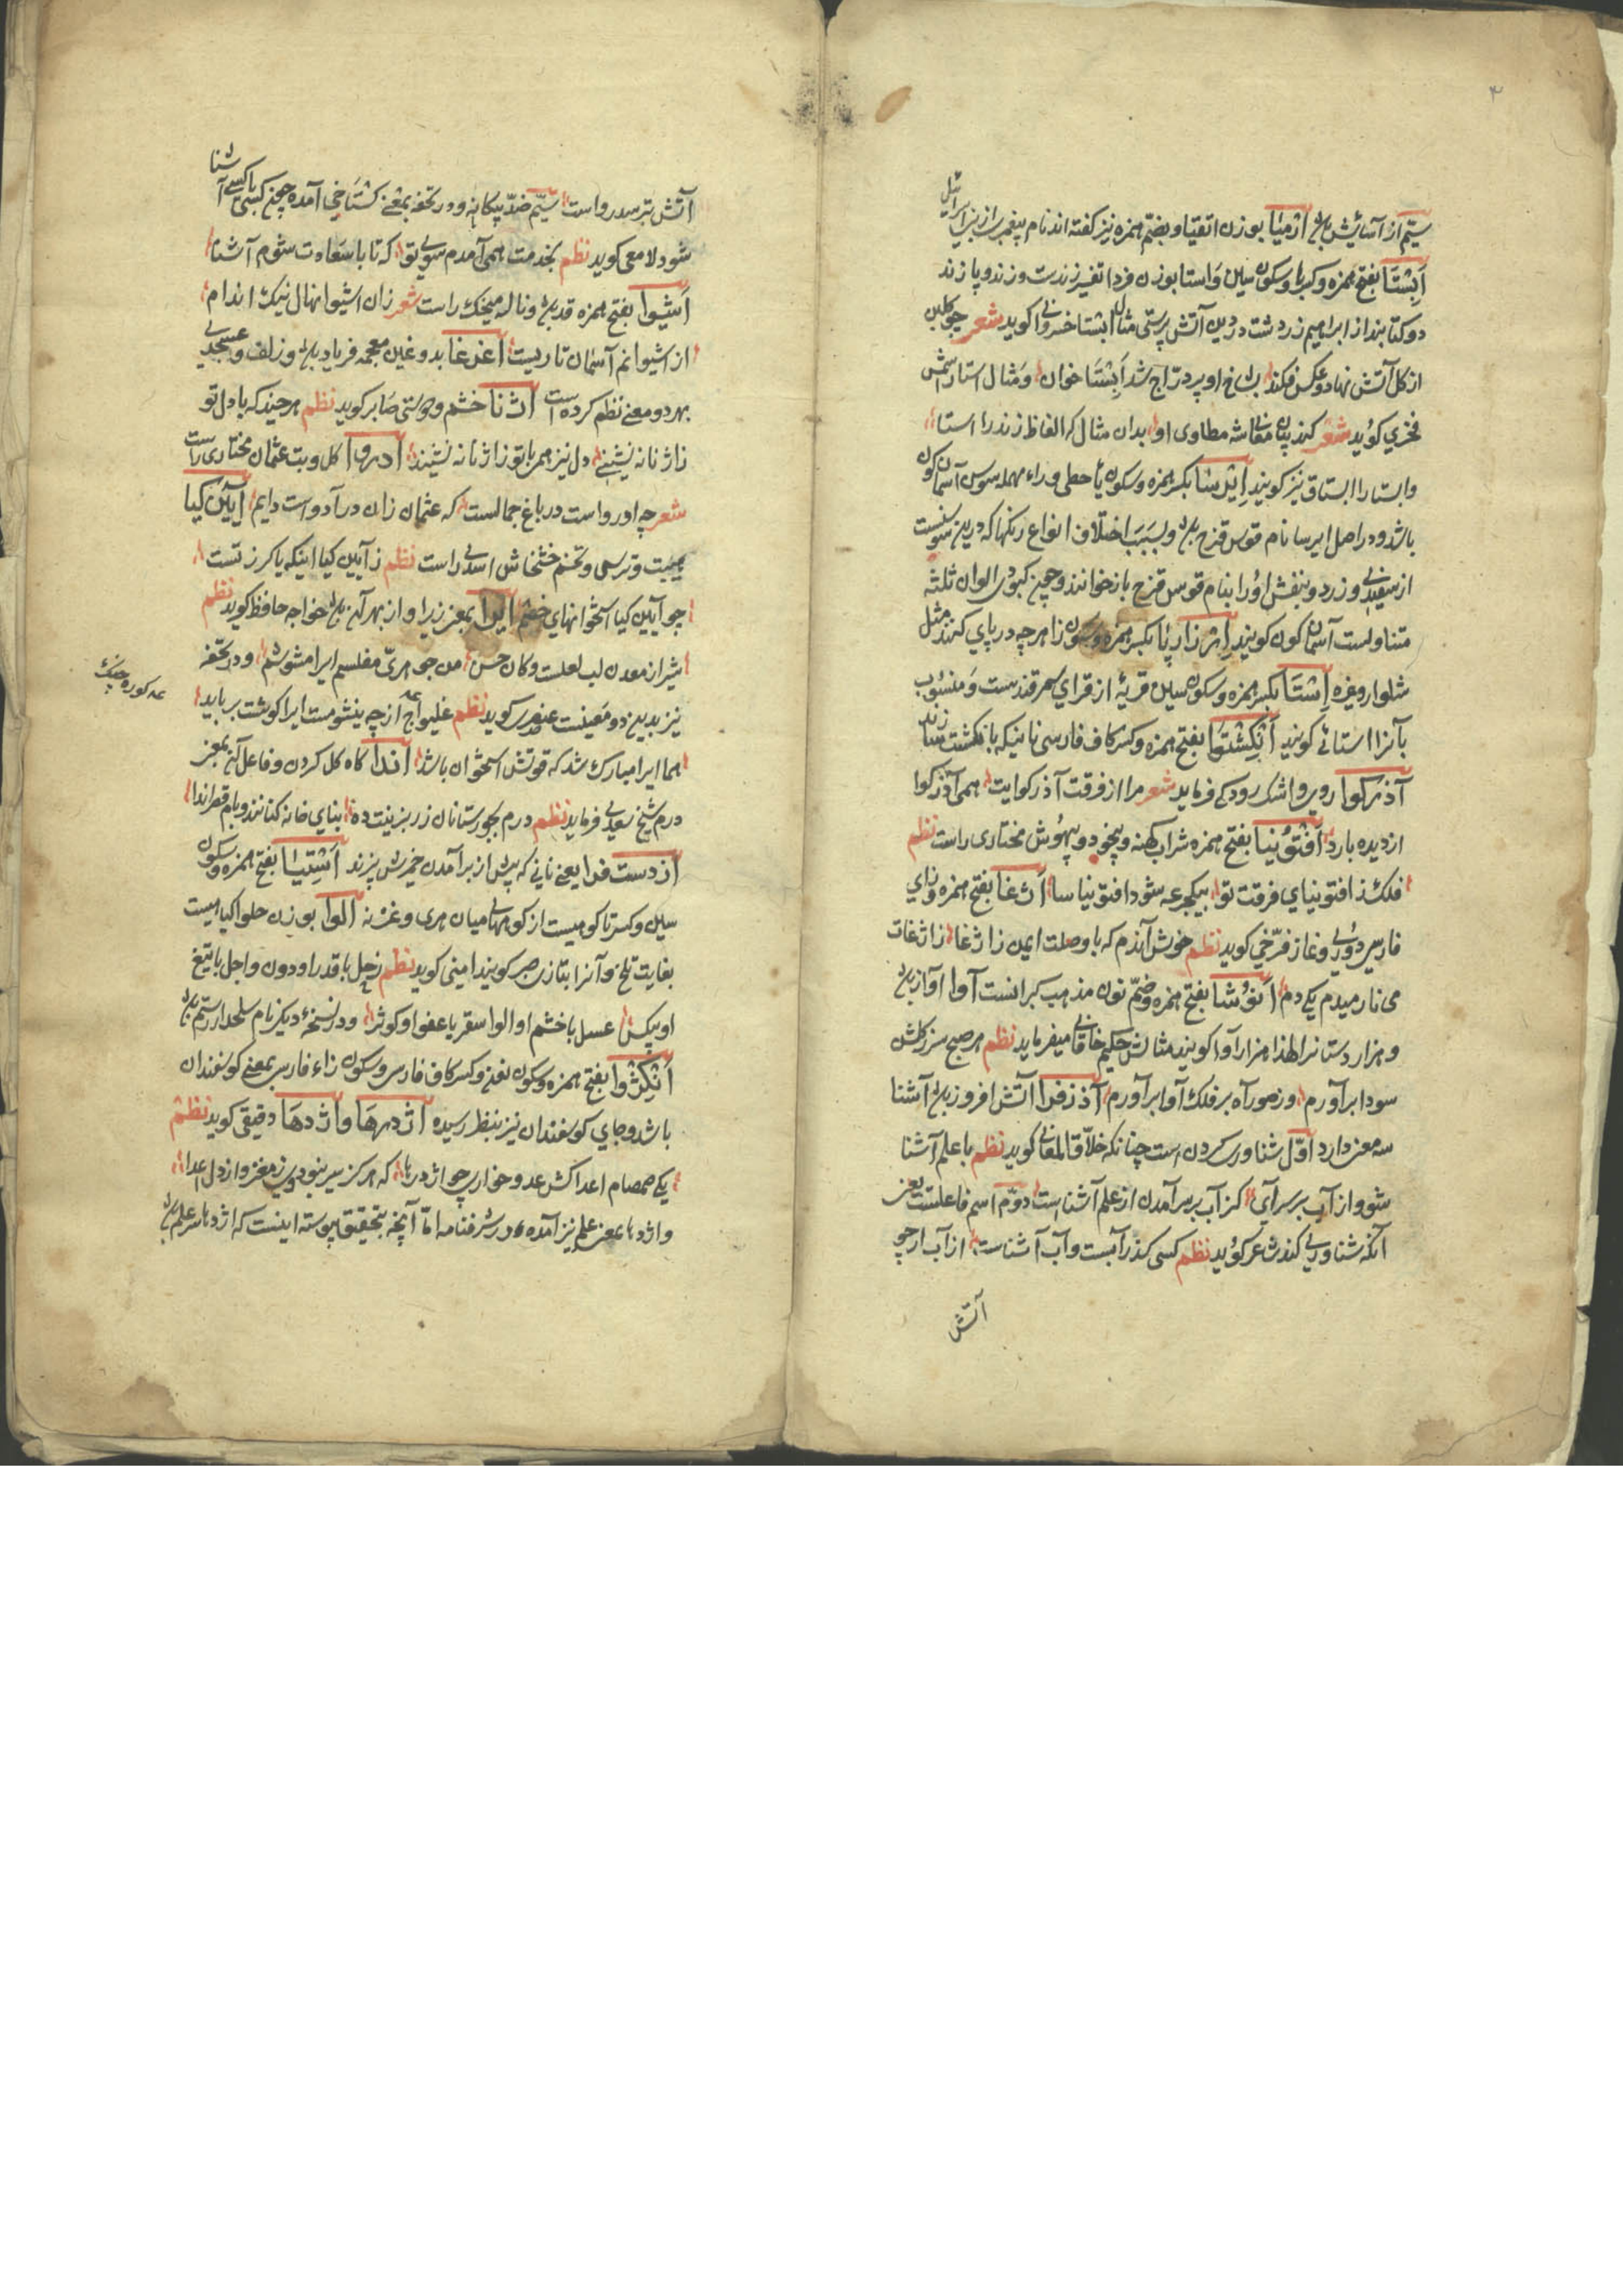 ۳
سیّم از آسایش باشد ارمیا بوزن اتقیا و بضمّ همزه نیز کفته اند نام پیغمبر از بنی اسرائیل
اَبِستا بفتح همزه و کسر با و سکون سین و استا بوزن فردا تفسیر زندست و زند و پازند
دو کتابند از ابراهیم زردشت در دین آتش پرستی مثال ابستا خسروانی کوید شعر چو کلبن
از کل آتش نهاد و عکس فکند بشاخ او بر درّاج شد اَبِستا خوان و مثال استا را شمس
فخری کوید شعر کند بیان معانی مطاوی او بدان مثال که الفاظ زند را استا
و ابستا را ابستاق نیز کویند ایرسا بکسر همزه و سکون یا حطی و راء مهمله سوسن آسمان کون
باشد و در اصل ایرسا نام قوس قزح باشد و بسبب اختلاف انواع رنکها که درین سوسنست
از سفیدی و زرد و بنفش او را بنام قوس قزح باز خوانند و چون کبودی الوان ثلثه
متناولست آسمان کون کویند ازارپا بکسر همزه و سکون زا هرچه در پای کنند مثل
شلوار و غیره اِستا بکسر همزه و سکون سین قریهٔ از قرای سمرقندست و منسوب
بآنرا استائی کویند اَنکِشتوا بفتح همزه و کسر کاف فارسی نانیکه بانکشت سازند
آذرکوا روی و اشک رودکی فرماید شعر مرا از فرقت آذر کوایت همی آذرکوا
از دیده بارد اَفتوینا بفتح همزه شراب کهنه و بیخود و بیهوش مختاری راست نظم
فلک ز افتوینای فرقت تو بیکجرعه شود افتوینا سا اَژغا بفتح همزه و زای
فارسی دوری و غاز فرّخی کوید نظم خوش آندم که با وصلت ایمن ز اژغا ز اژغات
می نارمیدم یکی دم اَنوشا بفتح همزه و ضمّ نون مذهب کبرانست آوا آواز باشد
و هزار دستانرا لهذا هزار آوا کویند مثالش حکیم خاقانی میفرماید نظم هر صبح سر ز کلشن
سودا برآورم وز صور آه بر فلک آوا برآورم آذرفزا آتش افروز باشد آشنا
سه معنی دارد اوّل شناوری کردن است چنانکه خلّاق المعانی کوید نظم با علم آشنا
شو و از آب بر سر آی کز آب بر سر آمدن از علم آشناست دوّم اسم فاعلست یعنی
آنکه شناوری کند شاعر کوید نظم کسی کندر آبست و آب آشناست از آب ار چو
آتش
آتش بترسد رواست سیّم ضدّ بیکانه و در تحفه بمعنی کستاخی آمده چون کسی با کسی آشنا
شود لامعی کوید نظم بخدمت همی آمدم سوی تو که تا با سعادت شوم آشنا
اَسیوا بفتح همزه قد باشد و ناله میخک راست شعر زان اسیوا نهال نیک اندام
از اسیوانم آسمان تاریست اغرغا بدو غین معجمه فریاد باشد و زلف و عسجدی
بهر دو معنی نظم کرده است اژنا خشم و دوستی صابر کوید نظم هرچند که با دل تو
ز اژنا نه نشینی دل نیز همی با تو ز اژنا نه نشیند ادروا کل و بت عثمان مختاری راست
شعر چه ادرواست در باغ جمالست که عثمان زان در آدواست دایم آیین کیا
هیبت و ترسی و تخم خشخاش اسدی راست نظم ز آیین کیا اینکه با کرز تست
چو آیین کیا استخوانهای خصم ایرا بمعنی زیرا و از بهر آن باشد خواجه حافظ کوید نظم
شیراز معدن لب لعلست و کان حسن من جوهریّ مفلسم ایرا مشوشم و در تحفه
نیز بدین دو معنیست عنصری کوید نظم غلیواج از چه میشومست ایرا کوشت برباید
هما ایرا مبارک شد که قوتش استخوان باشد اندا کاه کل کردن و فاعل آن بمعنی
درم شیخ سعدی فرماید نظم درم بجورستانان زر بزینت ده بنای خانه کنانند و بام قصر اندا
ازدست فزا یعنی نانی که پیش از برآمدن خمیرش پزند اَستِیا بفتح همزه و سکون
سین و کسر تا کوهیست از کوههای میان هری و غزنه الوا بوزن حلوا کیاهیست
بغایت تلخ و آنرا بتازی صبر کویند امینی کوید نظم زحل با قدر او دون و اجل با تیغ
او بیکس عسل با خشم او الوا سقر با عفو او کوثر و در نسخهٔ دیکر نام سلحدار رستم باشد
اَنکِژوا بفتح همزه و سکون نون و کسر کاف فارسی و سکون زاء فارسی بمعنی کوسفندان
باشد و جای کوسفندان نیز بنظر رسیده اژدرها و اژدها دقیقی کوید نظم
یکی صمصام اعداکش عدو خواری چو اژدرها که هرکز سیر نبود وی ز مغز و از دل اعدا
و اژدها بمعنی علم نیز آمده و در شرفنامه امّا آنچه بتحقیق پیوسته اینست که اژدها سر علم باشد
عه کوره جنک